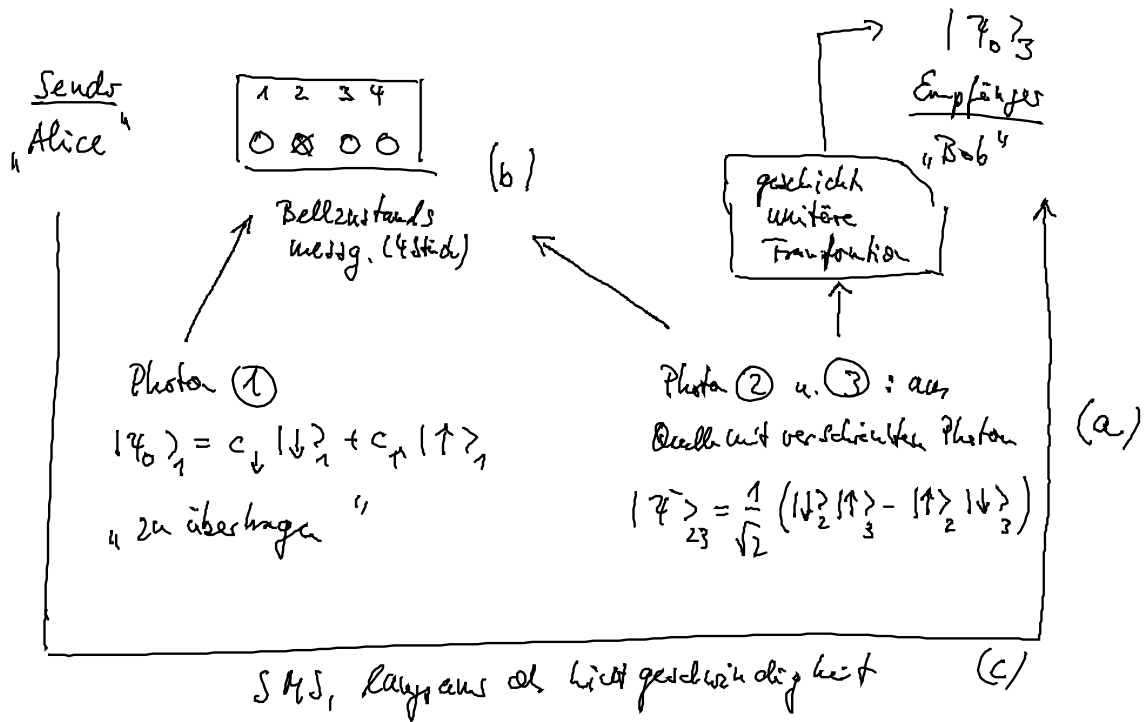 Sender
„Alice“
1 2 3 4
Bellzustands
messg. (4 Stück)
(b)
|Ψ₀⟩₃
Empfänger
„Bob“
geschickt
unitäre
Transformation
Photon ①
|Ψ₀⟩₁ = c↓ |↓⟩₁ + c↑ |↑⟩₁
„zu übertragen“
Photon ② u. ③ : aus
Quelle mit verschränkten Photon
|Ψ⁻⟩₂₃ = 1/√2 (|↓⟩₂ |↑⟩₃ - |↑⟩₂ |↓⟩₃)
(a)
SMS, langsamer als Lichtgeschwindigkeit
(c)